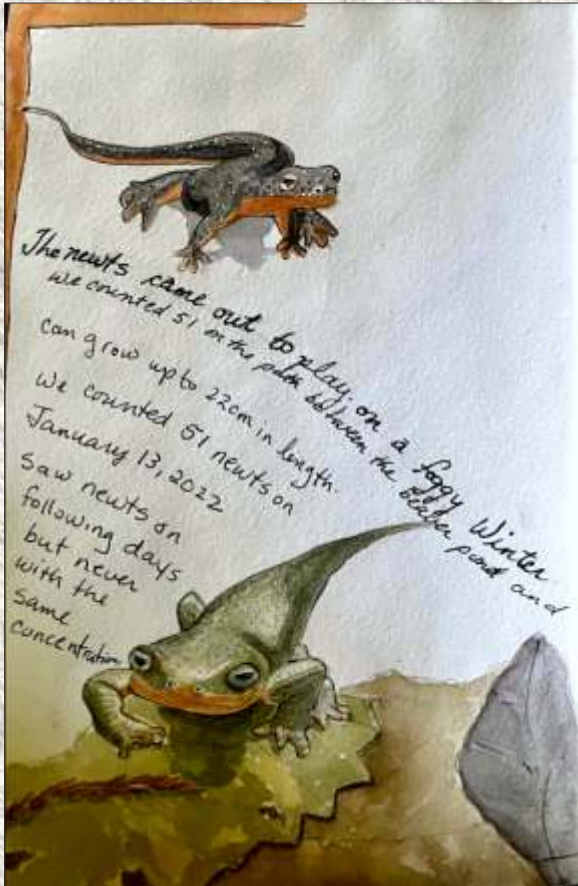 The newts came out to play, on a foggy Winter
we counted 51 on the path between the beaver pond and
can grow up to 22cm in length.
we counted 51 newts on
January 13, 2022
Saw newts on
following days
but never
with the
same
concentration